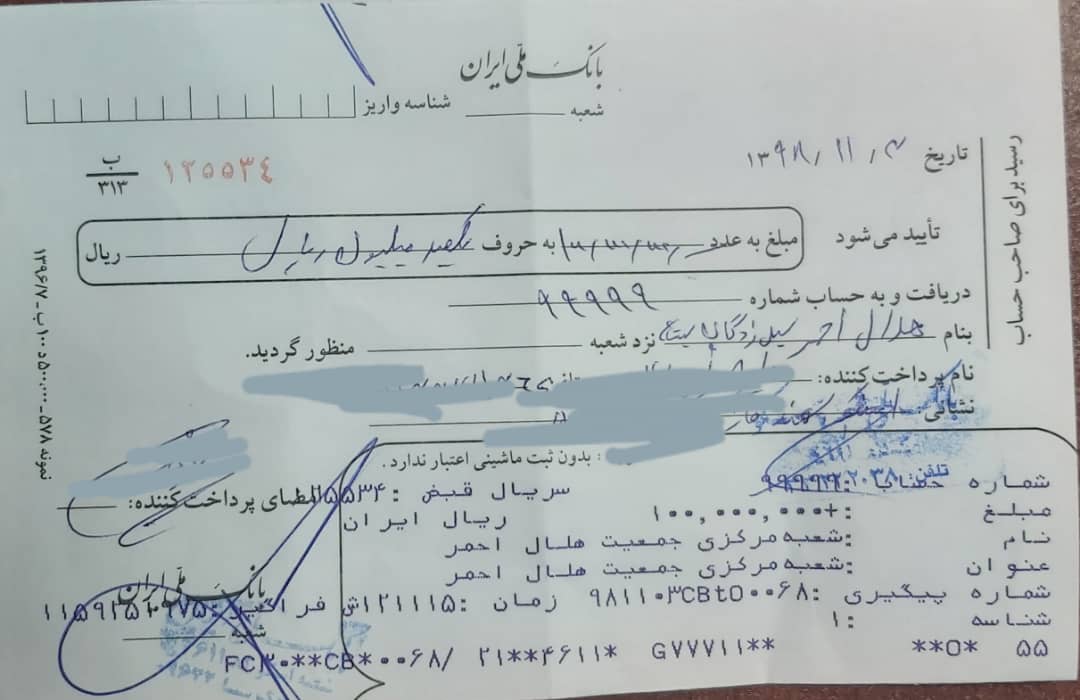 بانک ملّی ایران
شعبه
شناسه واریز
تاریخ ۱۳۹۸/۱۱/۳
ب
۳۱۳
۱۲۵۵۳۴
رسید برای صاحب حساب
تأیید می‌شود
مبلغ به عدد به حروف یکصد میلیون ریال ریال
دریافت و به حساب شماره ۹۹۹۹۹
بنام هلال احمر سیل زدگان نزد شعبه منظور گردید.
نام پرداخت کننده:
نشانی:
: بدون ثبت ماشینی اعتبار ندارد.
امضای پرداخت کننده:
شماره حساب : ۹۹۹۹۹ سریال قبض :
مبلغ : +۱۰۰,۰۰۰,۰۰۰ ریال ایران
نام : شعبه مرکزی جمعیت هلال احمر
عنوان : شعبه مرکزی جمعیت هلال احمر
شماره پیگیری : ۹۸۱۱۰۳CBtO۰۰۶۸ زمان : ۱۲۱۱۱۵
شناسه : ۱
۵۵ **O* G۷۷۷۱۱** ۲۱**۴۶۱۱* FC۲۰**CB*۰۰۶۸/
بانک ملّی ایران
شعبه
تلفن:
نمونه ۵۷۸